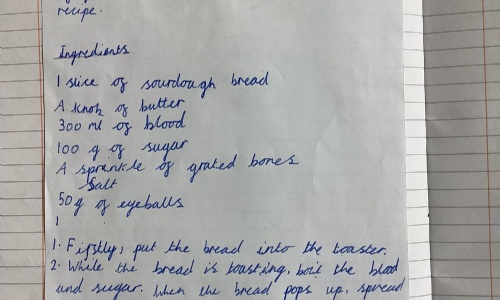 recipe.
Ingredients
1 slice of sourdough bread
A knob of butter
300 ml of blood
100 g of sugar
A sprinkle of grated bones
Salt
50 g of eyeballs
1
1. Firstly, put the bread into the toaster.
2. While the bread is toasting, boil the blood
and sugar. When the bread pops up, spread